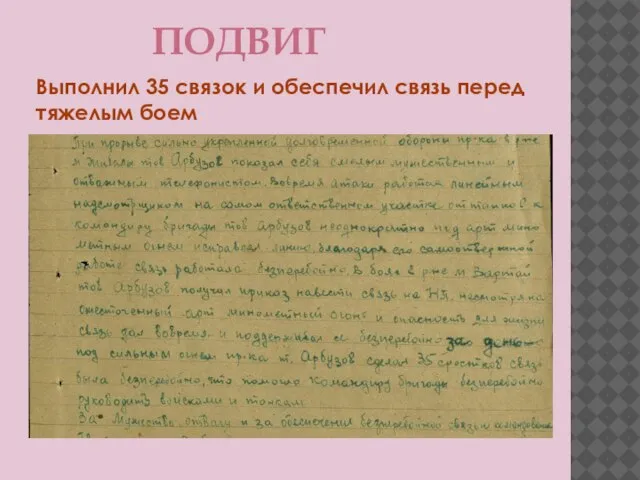 ПОДВИГ
Выполнил 35 связок и обеспечил связь перед
тяжелым боем
При прорыве сильно укрепленной долговременной обороны пр-ка в р-не
тов Арбузов показал себя смелым мужественным и
отважным телефонистом. Вовремя атаки работая линейным
надсмотрщиком на самом ответственном участке от к
командиру бригады тов Арбузов неоднократно под арт мино
метным огнем исправлял линию, благодаря его самоотверженной
работе связь работала бесперебойно. В боях в р-не м
тов Арбузов получил приказ навести связь на НП, несмотря на
ожесточенный арт минометный огонь и опасность для жизни
связь дал вовремя и поддерживал её безперебойно за день
под сильным огнем пр-ка т. Арбузов сделал 35 сростков связь
была безперебойно, что помогло командиру бригады безперебойно
руководить войсками и
За мужество отвагу и за обеспечения безперебойной связью